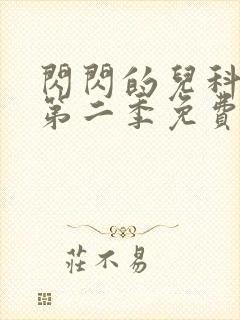 閃閃的兒科
第二季免費
莊不易